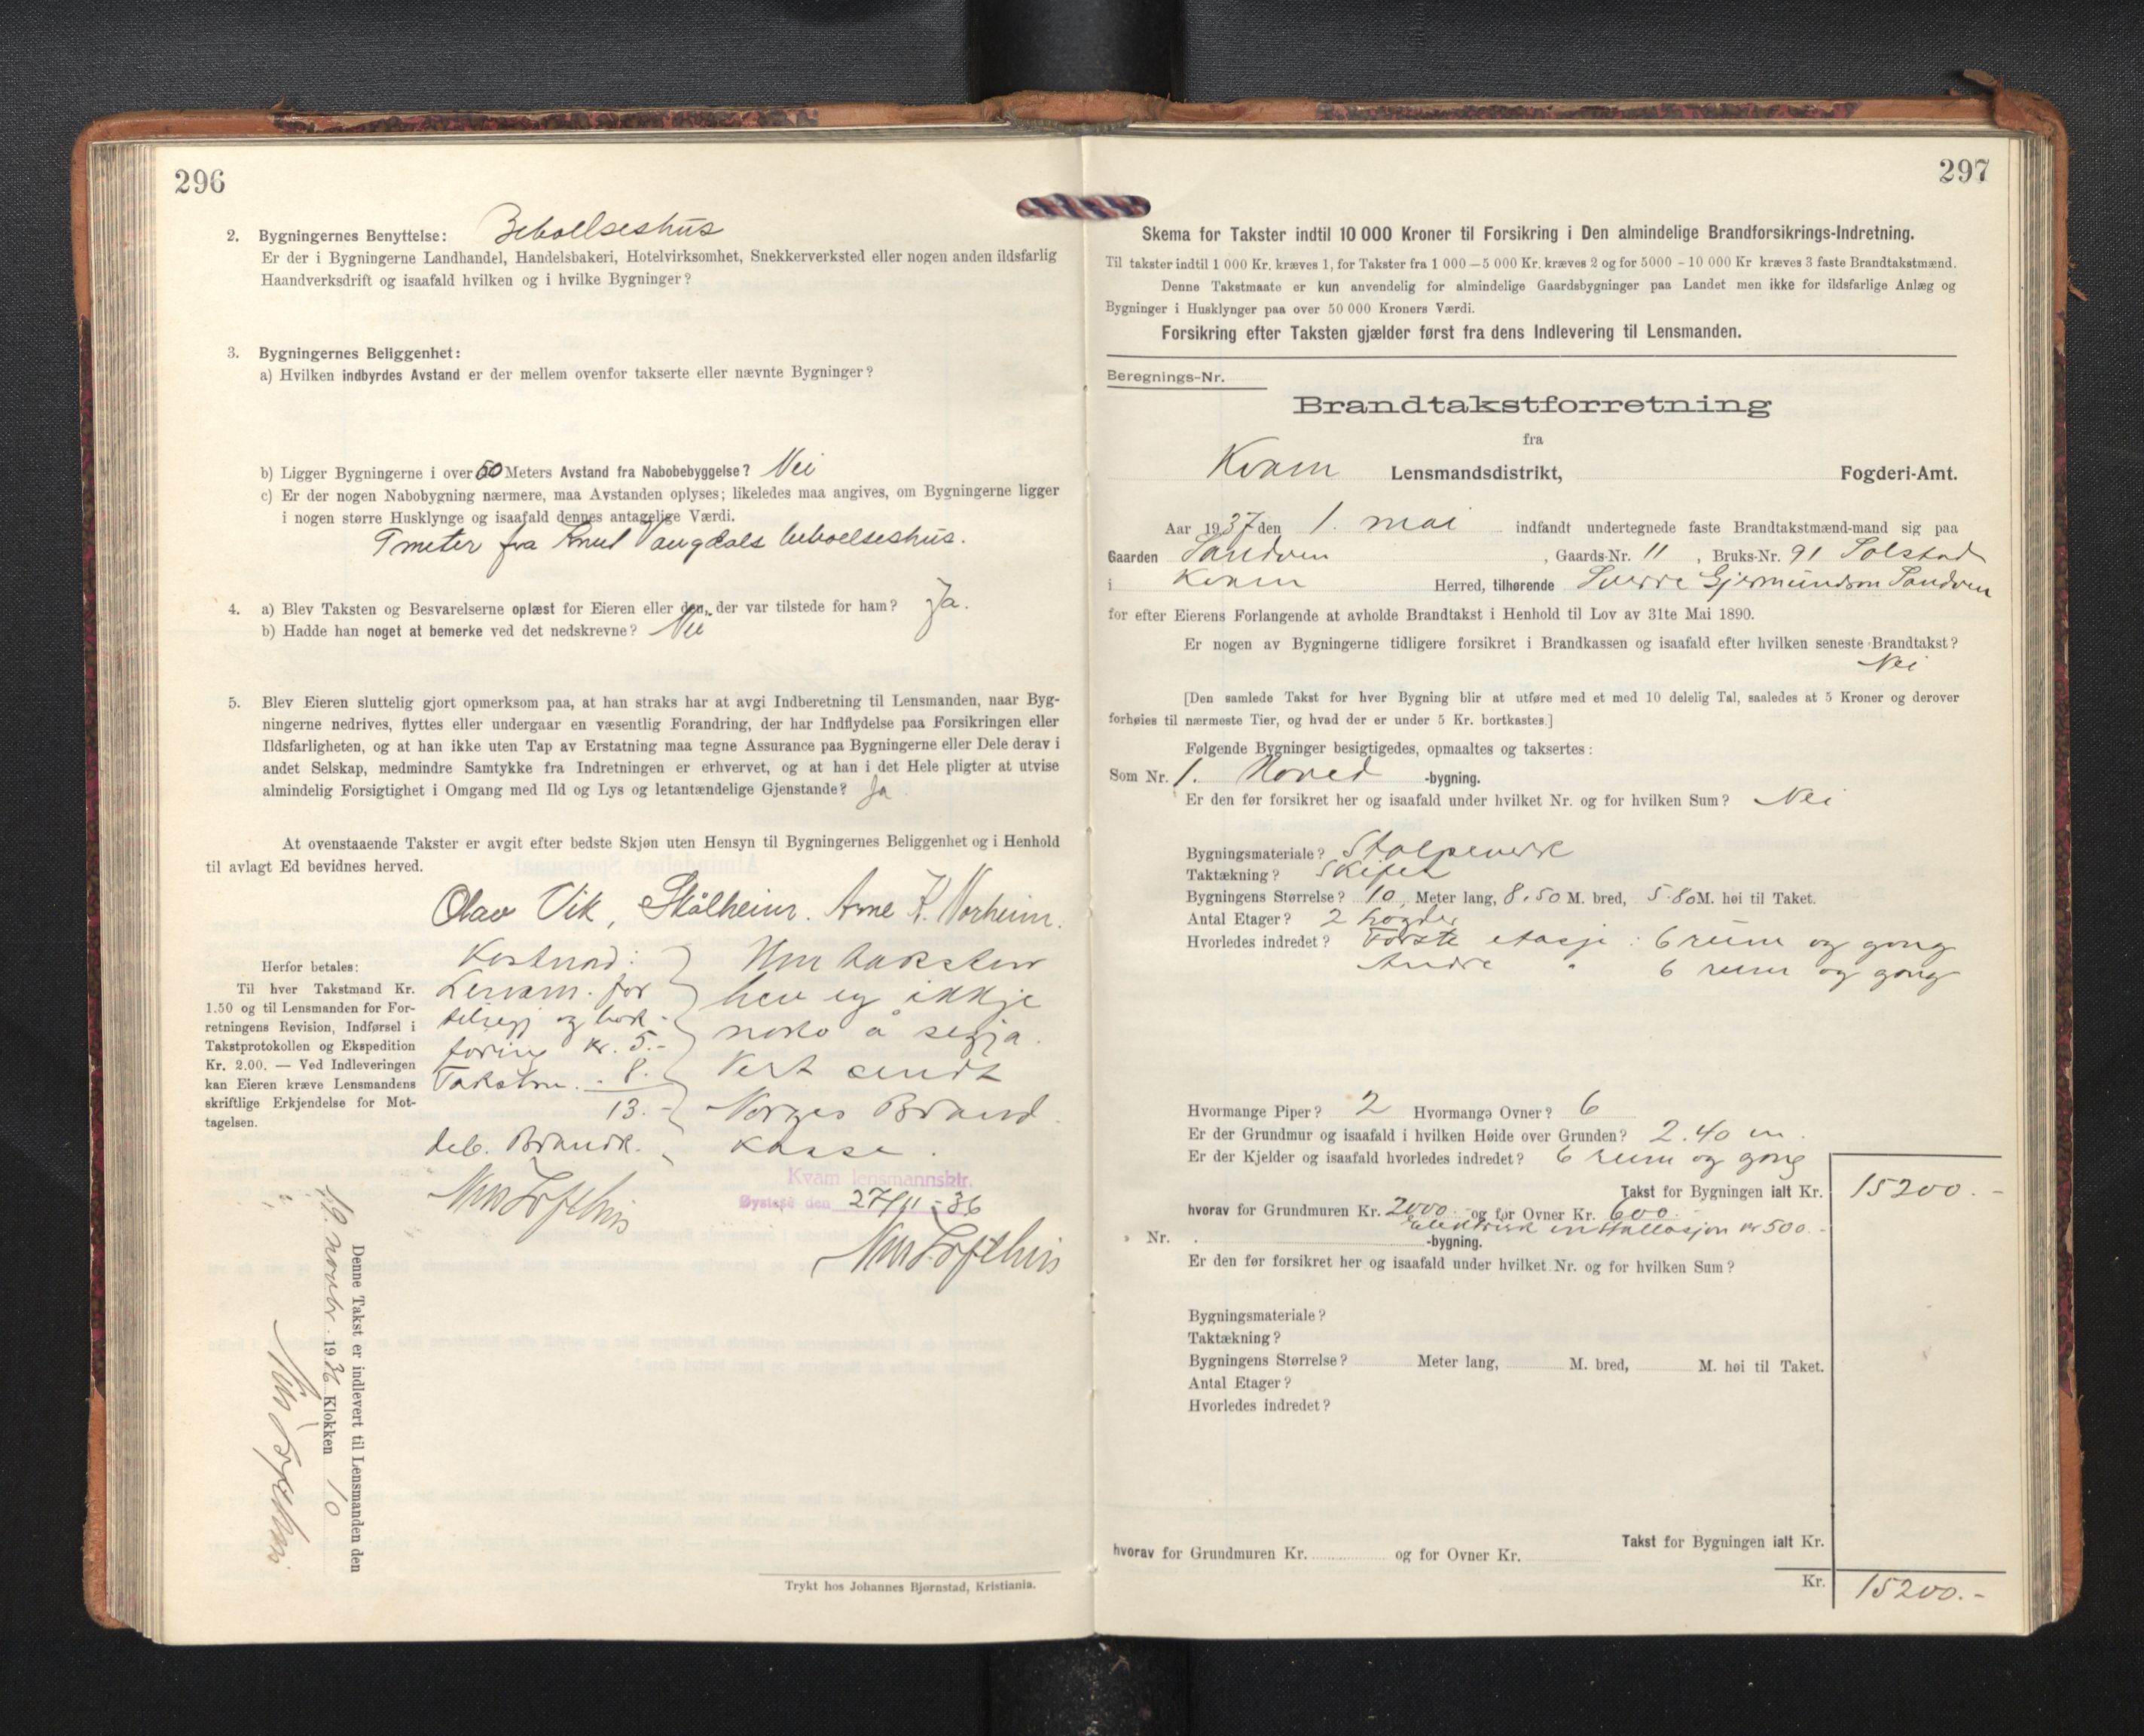 296
2. Bygningernes Benyttelse: Beboelseshus
Er der i Bygningerne Landhandel, Handelsbakeri, Hotelvirksomhet, Snekkerverksted eller nogen anden ildsfarlig
Haandverksdrift og isaafald hvilken og i hvilke Bygninger?
3. Bygningernes Beliggenhet:
a) Hvilken indbyrdes Avstand er der mellem ovenfor takserte eller nævnte Bygninger?
b) Ligger Bygningerne i over 50 Meters Avstand fra Nabobebyggelse? Nei
c) Er der nogen Nabobygning nærmere, maa Avstanden oplyses; likeledes maa angives, om Bygningerne ligger
i nogen større Husklynge og isaafald dennes antagelige Værdi.
9 meter fra Knut Vangdals beboelseshus.
4. a) Blev Taksten og Besvarelserne oplæst for Eieren eller den, der var tilstede for ham? Ja.
b) Hadde han noget at bemerke ved det nedskrevne? Nei
5. Blev Eieren sluttelig gjort opmerksom paa, at han straks har at avgi Indberetning til Lensmanden, naar Byg-
ningerne nedrives, flyttes eller undergaar en væsentlig Forandring, der har Indflydelse paa Forsikringen eller
Ildsfarligheten, og at han ikke uten Tap av Erstatning maa tegne Assurance paa Bygningerne eller Dele derav i
andet Selskap, medmindre Samtykke fra Indretningen er erhvervet, og at han i det Hele pligter at utvise
almindelig Forsigtighet i Omgang med Ild og Lys og letantændelige Gjenstande? Ja
At ovenstaaende Takster er avgit efter bedste Skjøn uten Hensyn til Bygningernes Beliggenhet og i Henhold
til avlagt Ed bevidnes herved.
Olav Vik, Skålheim. Arne K. Norheim.
Herfor betales:
Til hver Takstmand Kr.
1.50 og til Lensmanden for For-
retningens Revision, Indførsel i
Takstprotokollen og Ekspedition
Kr. 2.00. — Ved Indleveringen
kan Eieren kræve Lensmandens
skriftlige Erkjendelse for Mot-
tagelsen.
Kostnad:
Lensm. for
tilsegj og bok-
føring kr. 5.-
Takstm. - 8.
13.-
deb. Brandk.
Um taksten
hev eg ikkje
noko å segja.
Vert sendt
Norges Brand
kasse.
Kvam lensmannsktr.
Øystese den 27/11-36
Denne Takst er indlevert til Lensmanden den
19. novbr. 1936 Klokken 10
Trykt hos Johannes Bjørnstad, Kristiania.
297
Skema for Takster indtil 10 000 Kroner til Forsikring i Den almindelige Brandforsikrings-Indretning.
Til takster indtil 1 000 Kr. kræves 1, for Takster fra 1 000—5 000 Kr. kræves 2 og for 5000 - 10 000 Kr kræves 3 faste Brandtakstmænd.
Denne Takstmaate er kun anvendelig for almindelige Gaardsbygninger paa Landet men ikke for ildsfarlige Anlæg og
Bygninger i Husklynger paa over 50 000 Kroners Værdi.
Forsikring efter Taksten gjælder først fra dens Indlevering til Lensmanden.
Beregnings-Nr.
Brandtakstforretning
fra
Kvam Lensmandsdistrikt, Fogderi-Amt.
Aar 1937 den 1. mai indfandt undertegnede faste Brandtakstmænd-mand sig paa
Gaarden Sandven , Gaards-Nr. 11 , Bruks-Nr. 91 Solstad
i Kvam Herred, tilhørende Sverre Gjermundson Sandven
for efter Eierens Forlangende at avholde Brandtakst i Henhold til Lov av 31te Mai 1890.
Er nogen av Bygningerne tidligere forsikret i Brandkassen og isaafald efter hvilken seneste Brandtakst?
Nei
[Den samlede Takst for hver Bygning blir at utføre med et med 10 delelig Tal, saaledes at 5 Kroner og derover
forhøies til nærmeste Tier, og hvad der er under 5 Kr. bortkastes.]
Følgende Bygninger besigtigedes, opmaaltes og taksertes:
Som Nr. 1. Hoved -bygning.
Er den før forsikret her og isaafald under hvilket Nr. og for hvilken Sum? Nei
Bygningsmateriale? Stolpeverk
Taktækning? Skifer
Bygningens Størrelse? 10 Meter lang, 8.50 M. bred, 5.80 M. høi til Taket.
Antal Etager? 2 høgder
Hvorledes indredet? Første etasje: 6 rum og gong
Andre " 6 rum og gong
Hvormange Piper? 2 Hvormange Ovner? 6
Er der Grundmur og isaafald i hvilken Høide over Grunden? 2.40 m.
Er der Kjelder og isaafald hvorledes indredet? 6 rum og gong
Takst for Bygningen ialt Kr. 15200.-
hvorav for Grundmuren Kr. 2000.- og for Ovner Kr. 600.-
Elektrisk installasjon kr 500.-
Nr. -bygning.
Er den før forsikret her og isaafald under hvilket Nr. og for hvilken Sum?
Bygningsmateriale?
Taktækning?
Bygningens Størrelse? Meter lang, M. bred, M. høi til Taket.
Antal Etager?
Hvorledes indredet?
Takst for Bygningen ialt Kr.
hvorav for Grundmuren Kr. og for Ovner Kr.
Kr. 15200.-